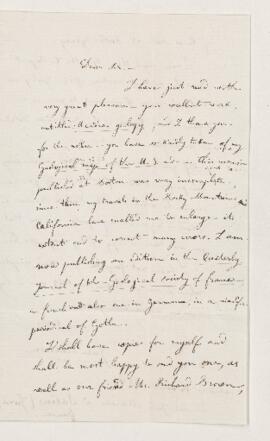 Dear Sir. —
I have just read with
very great pleasure your excellent work
entitled Acadian geology, and I thank you
for the notice you have so kindly taken of my
Geological map of the U.S. and — This memoir
published at Boston was very incomplete,
since then, my travels in the Rocky Mountains &
California have enabled me to enlarge its
extent and to correct many errors. I am
now publishing an edition in the Quarterly
Journal of the Geological Society of France —
in french and also one in German, in a
periodical of Gotha. —
I shall have copies for myself and
shall be most happy to send you one, as
well as our friend Mr. Richard Brown,